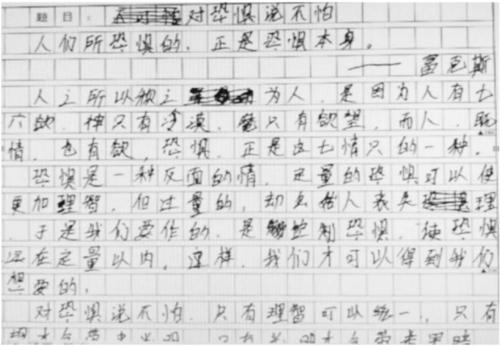 题目: 对恐惧说不怕
人们所恐惧的，正是恐惧本身。
—— 富克斯
人之所以称之为人，是因为人有七
六欲，神只有冷漠，鬼只有欲望，而人，既
情，也有欲，恐惧，正是这七情只的一种。
恐惧是一种反面的情，定量的恐惧可以使
更加理智，但过量的，却会给人丧失理
，于是我们要作的，是控制恐惧，使恐惧
在定量以内，这样，我们才可以得到我们
想要的。
对恐惧说不怕，只有理智可以统一，只有